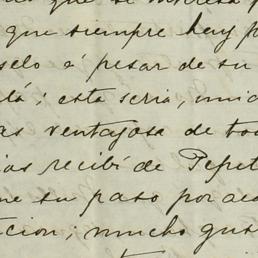 que se
que siempre hay p
selo é pesar de su
lá; esta seria, mi
as ventajosa de to
ias recibí de Pepet
ne su paso por ac
cion; mucho gus